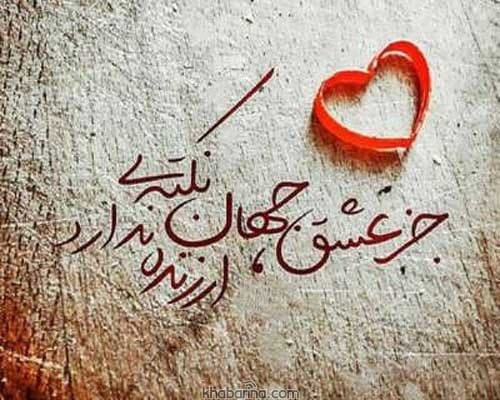 جز عشق، جهان نکته‌ی
ارزنده ندارد
khabarina.com